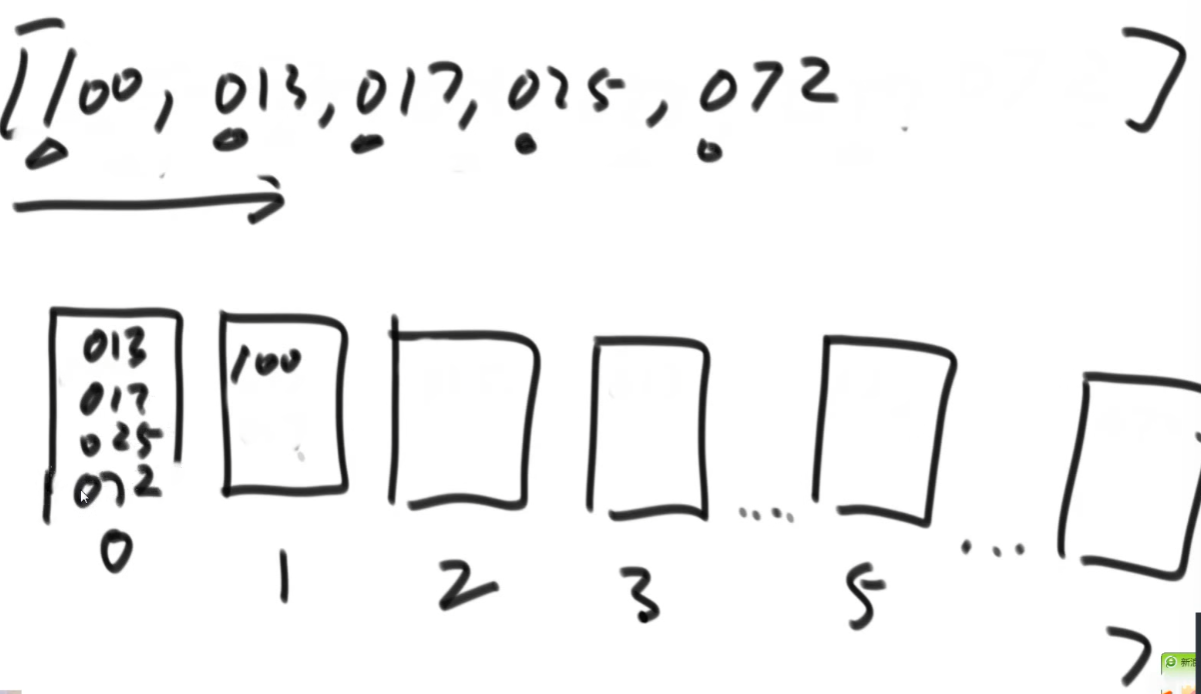 [100, 013, 017, 025, 072 ]
013 100
017
025
072
.... ...
0 1 2 3 5 7